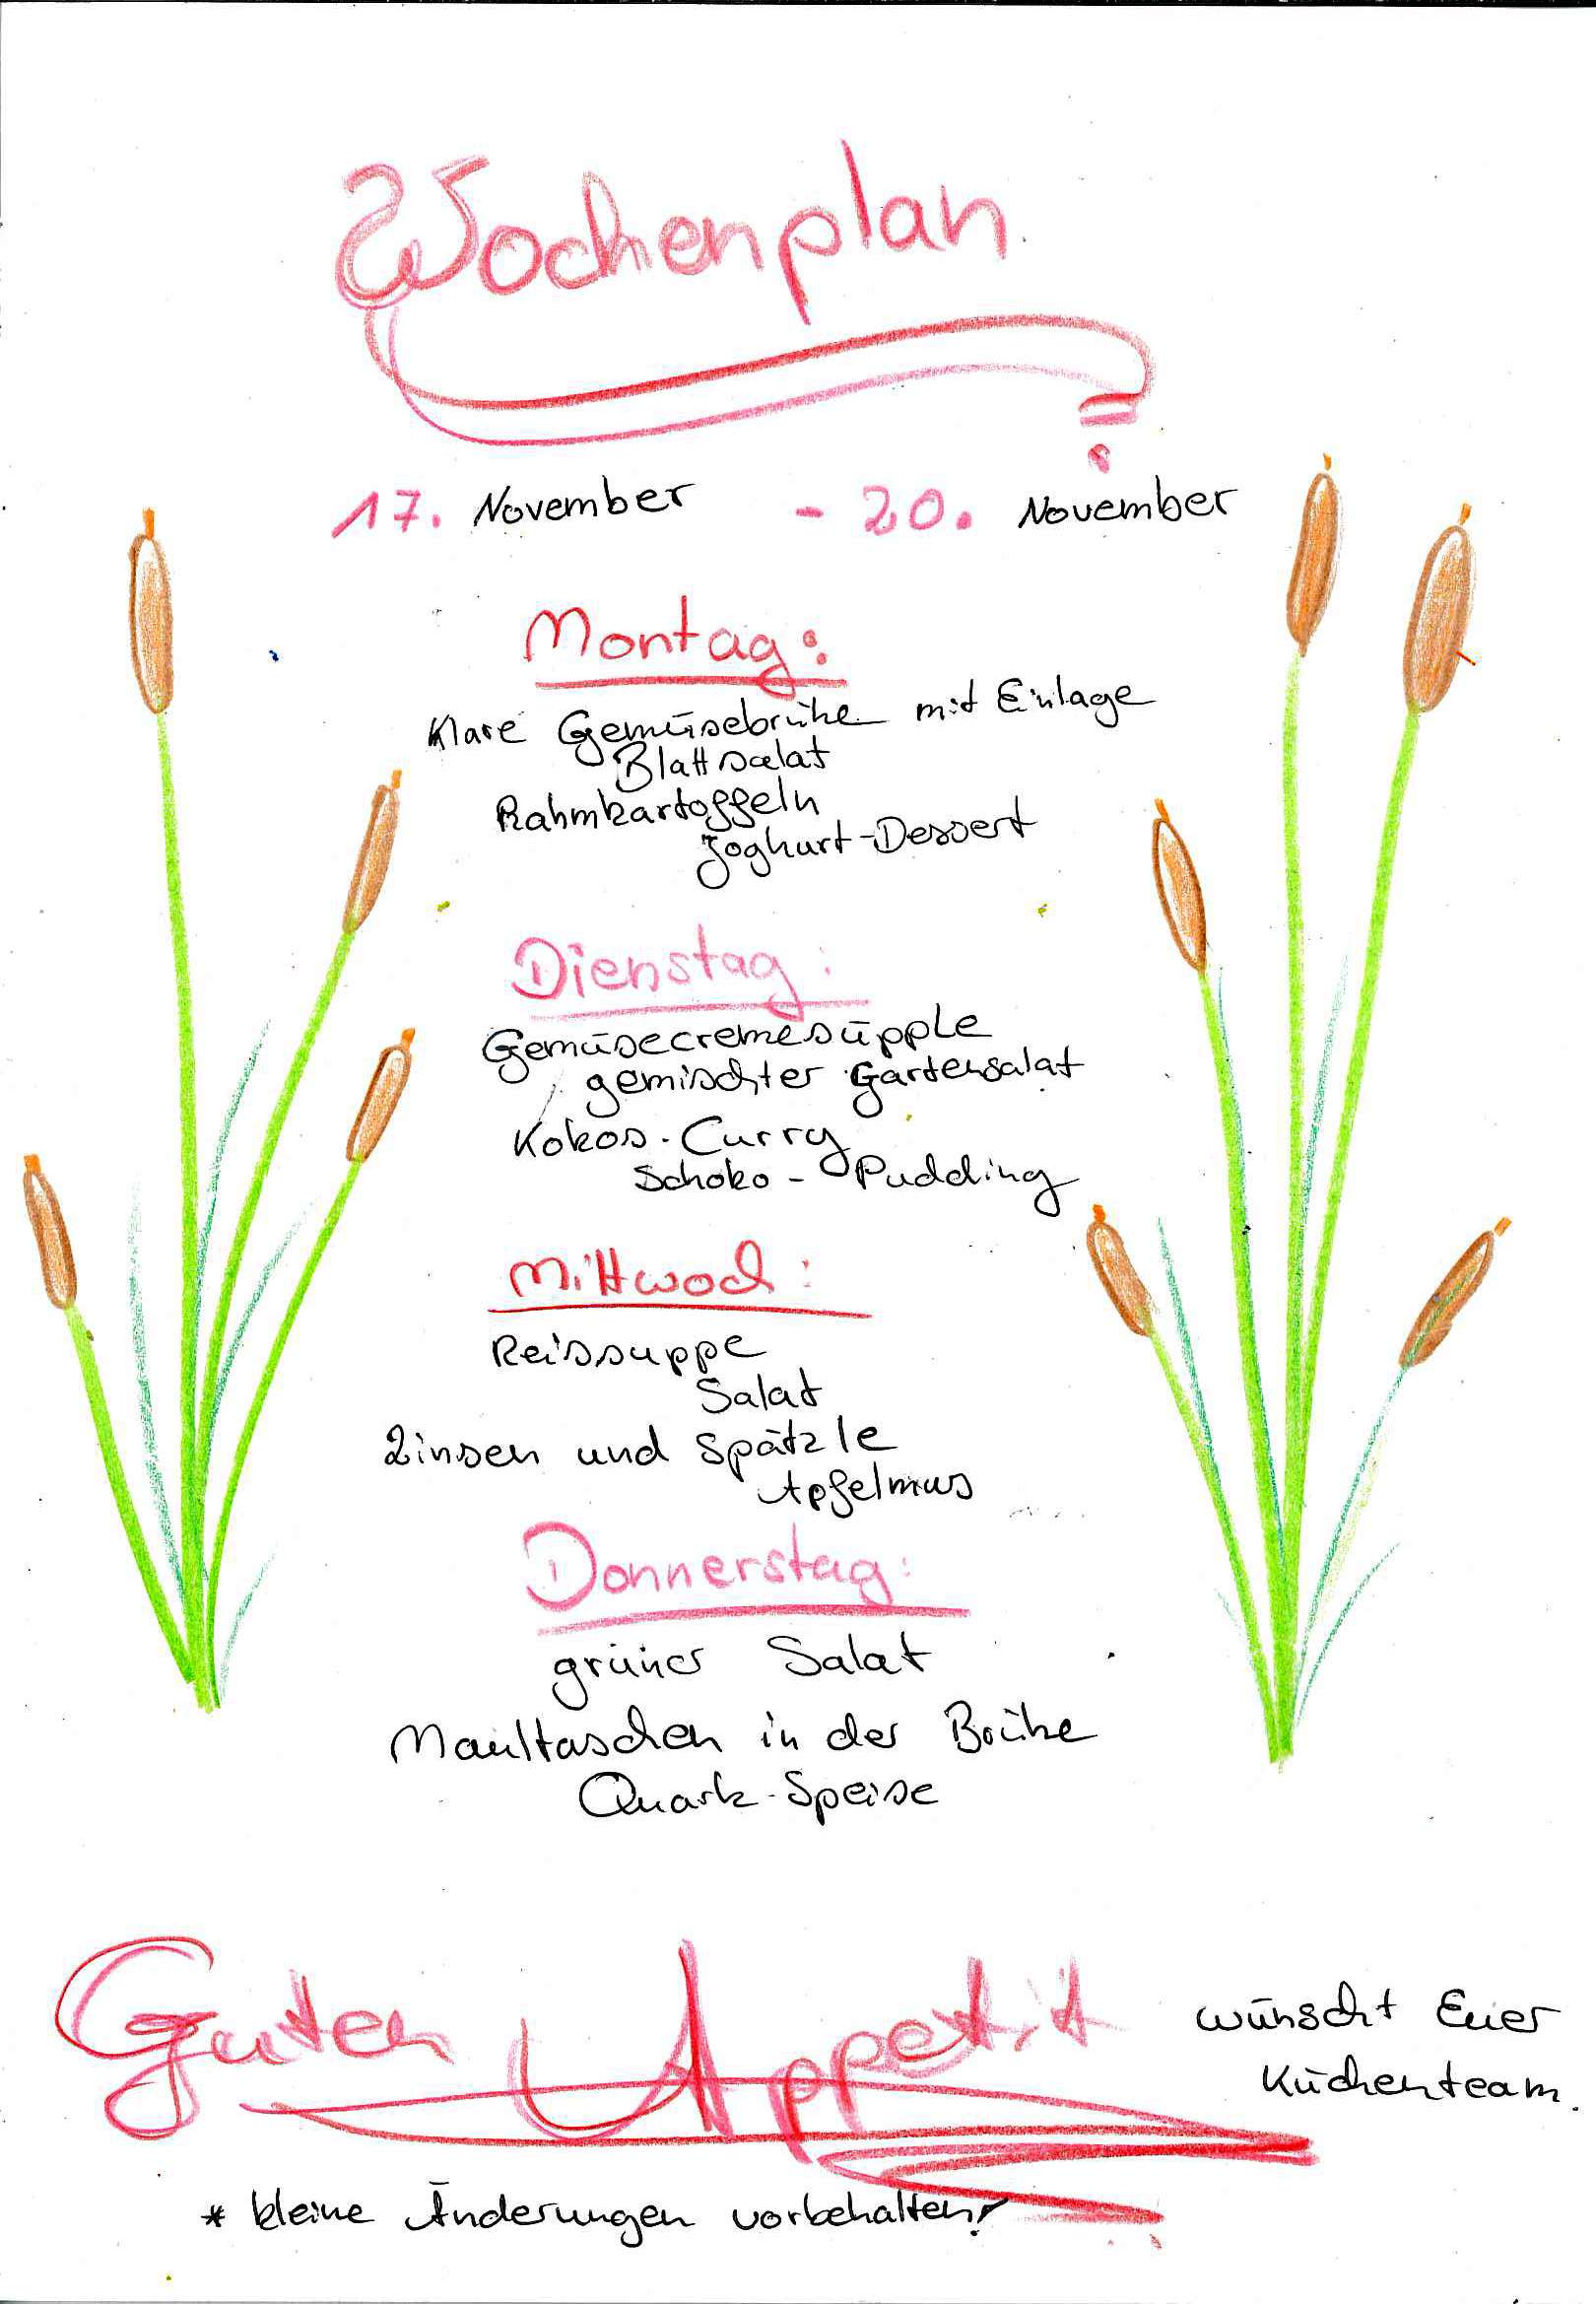 Wochenplan
17. November - 20. November
Montag:
Klare Gemüsebrühe mit Einlage
Blattsalat
Rahmkartoffeln
Joghurt-Dessert
Dienstag:
Gemüsecremesüpple
gemischter Gartensalat
Kokos-Curry
Schoko-Pudding
Mittwoch:
Reissuppe
Salat
Linsen und Spätzle
Apfelmus
Donnerstag:
grüner Salat
Maultaschen in der Brühe
Quark-Speise
Guten Appetit wünscht Euer
Küchenteam.
* kleine Änderungen vorbehalten!